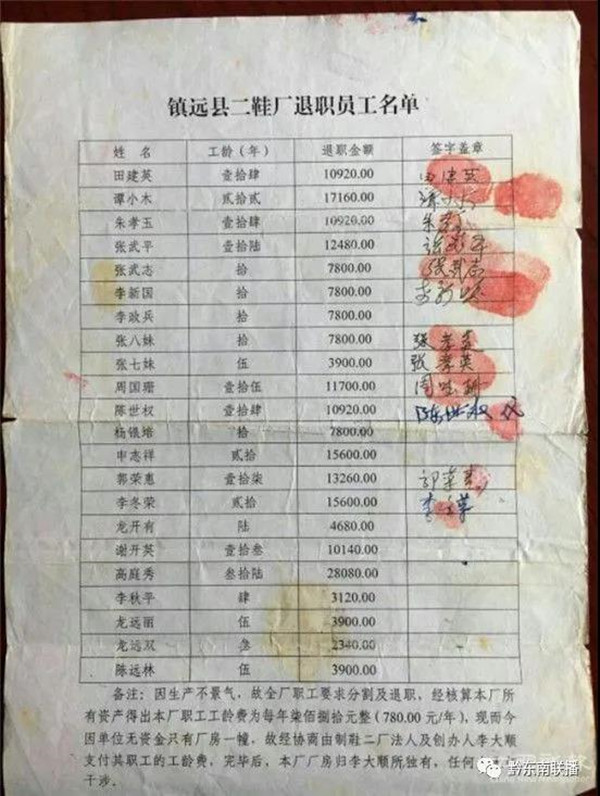 镇远县二鞋厂退职员工名单
姓 名 工龄（年） 退职金额 签字盖章
田建英 壹拾肆 10920.00
谭小木 贰拾贰 17160.00 谭小木
朱孝玉 壹拾肆 10920.00 朱孝玉
张武平 壹拾陆 12480.00 张武平
张武志 拾 7800.00 张武志
李新国 拾 7800.00 李新国
李政兵 拾 7800.00
张八妹 拾 7800.00
张七妹 伍 3900.00 张孝英
周国珊 壹拾伍 11700.00 周国珊
陈世权 壹拾肆 10920.00 陈世权
杨银培 拾 7800.00
申志祥 贰拾 15600.00
郭荣惠 壹拾柒 13260.00 郭荣惠
李冬荣 贰拾 15600.00 李冬荣
龙开有 陆 4680.00
谢开英 壹拾叁 10140.00
高庭秀 叁拾陆 28080.00
李秋平 肆 3120.00
龙远丽 伍 3900.00
龙远双 叁 2340.00
陈远林 伍 3900.00
备注：因生产不景气，故全厂职工要求分割及退职，经核算本厂所
有资产得出本厂职工工龄费为每年柒佰捌拾元整（780.00 元/年），现而今
因单位无资金只有厂房一幢，故经协商由制鞋二厂法人及创办人李大顺
支付其职工的工龄费，完毕后，本厂厂房归李大顺所独有，任何
干涉．
黔东南联播